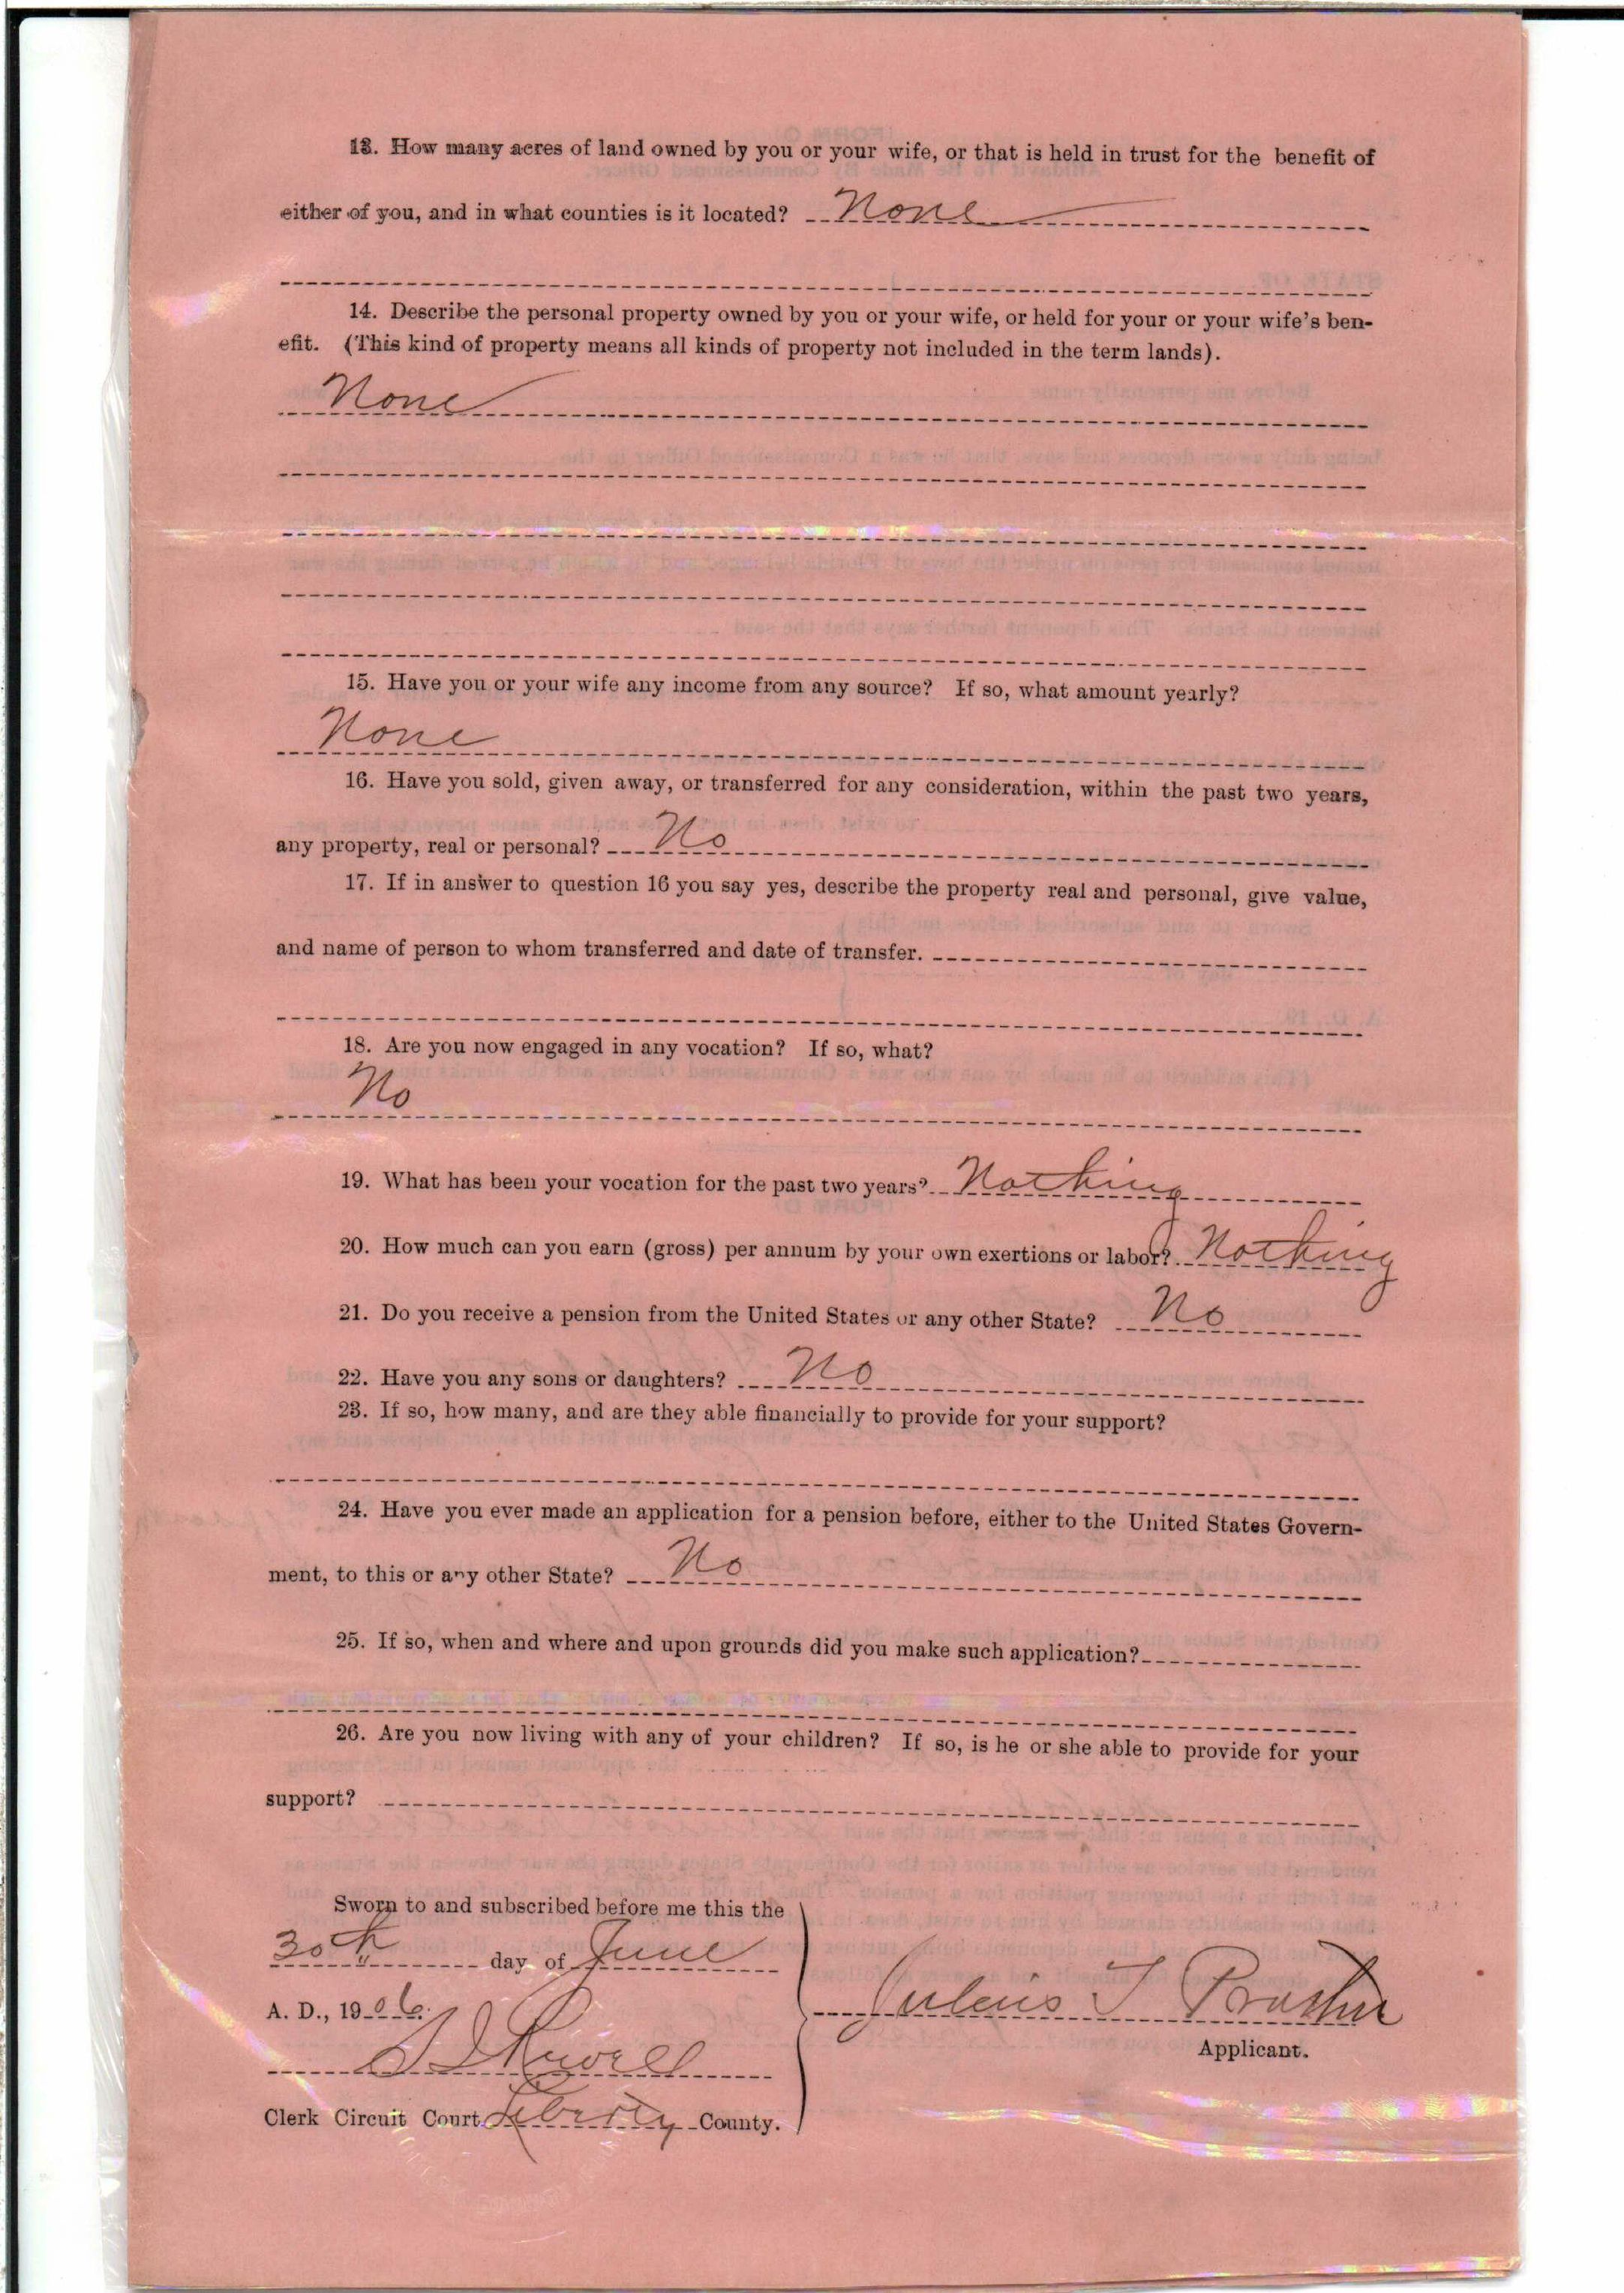 13. How many acres of land owned by you or your wife, or that is held in trust for the benefit of
either of you, and in what counties is it located? None
14. Describe the personal property owned by you or your wife, or held for your or your wife's ben-
efit. (This kind of property means all kinds of property not included in the term lands).
None
15. Have you or your wife any income from any source? If so, what amount yearly?
None
16. Have you sold, given away, or transferred for any consideration, within the past two years,
any property, real or personal? No
17. If in answer to question 16 you say yes, describe the property real and personal, give value,
and name of person to whom transferred and date of transfer.
18. Are you now engaged in any vocation? If so, what?
No
19. What has been your vocation for the past two years? Nothing
20. How much can you earn (gross) per annum by your own exertions or labor? Nothing
21. Do you receive a pension from the United States or any other State? No
22. Have you any sons or daughters? No
23. If so, how many, and are they able financially to provide for your support?
24. Have you ever made an application for a pension before, either to the United States Govern-
ment, to this or any other State? No
25. If so, when and where and upon grounds did you make such application?
26. Are you now living with any of your children? If so, is he or she able to provide for your
support?
Sworn to and subscribed before me this the
30th day of June
A. D., 1906.
Julius T
Applicant.
Clerk Circuit Court Liberty County.